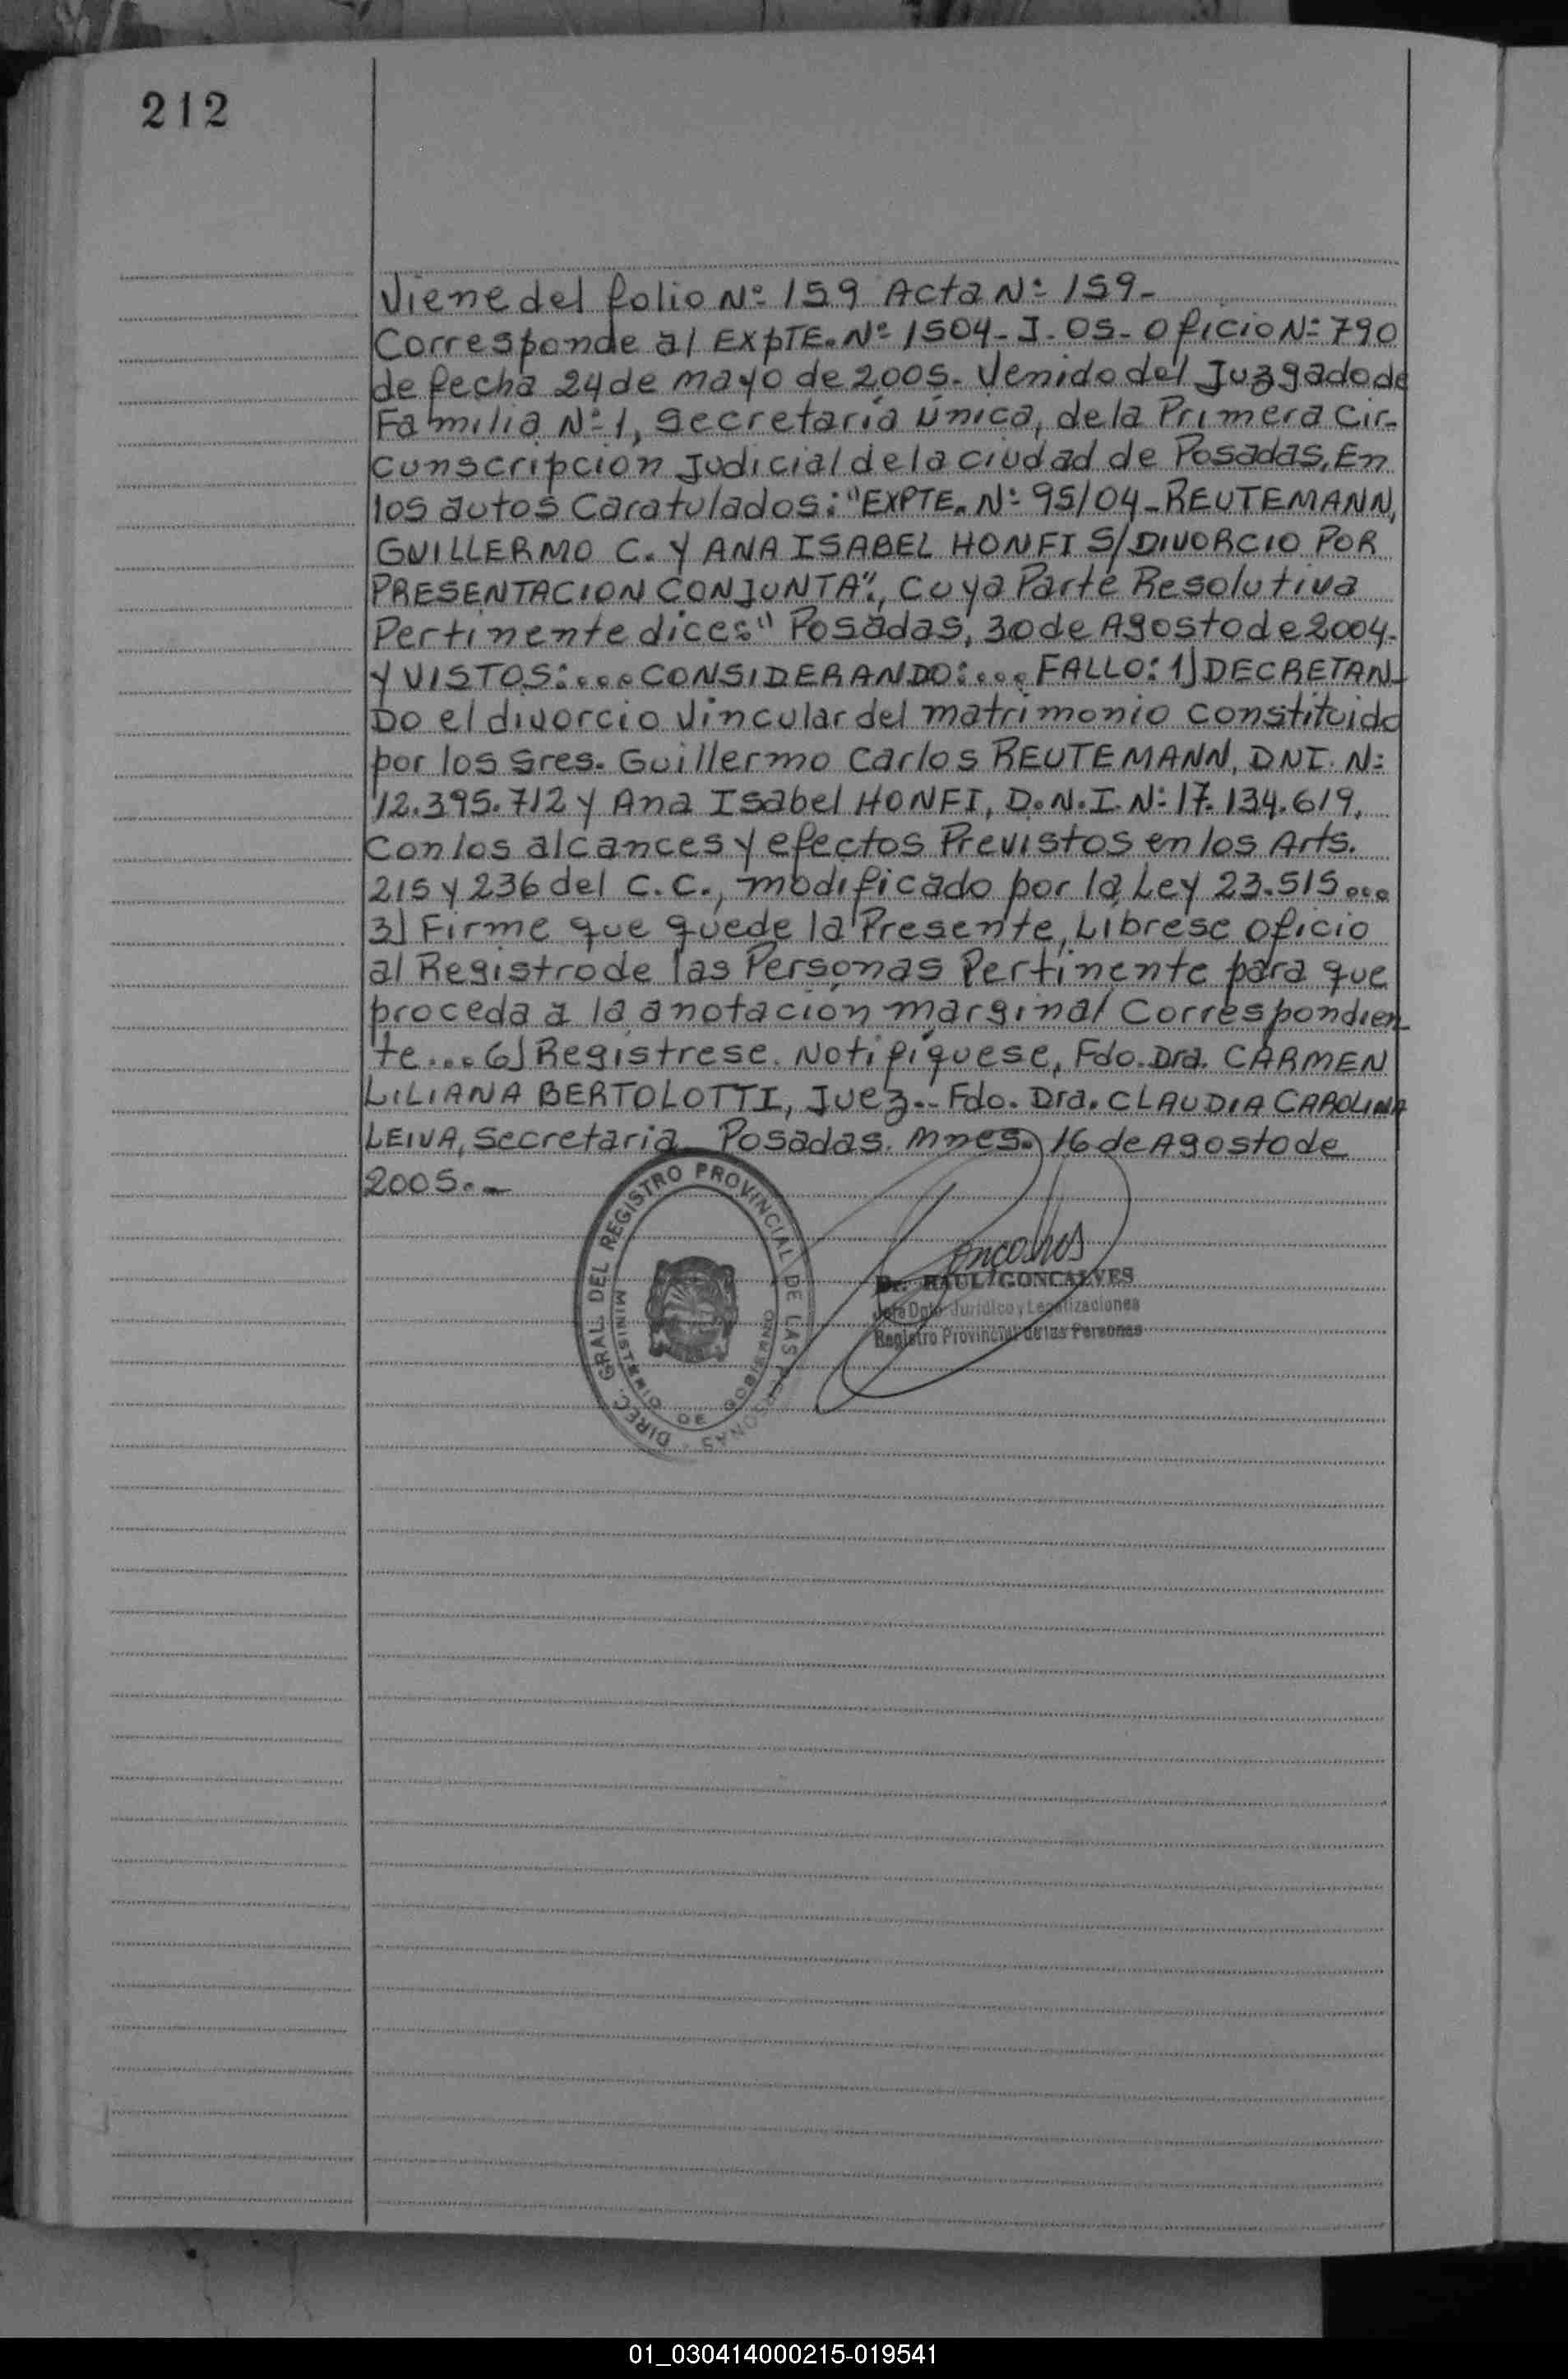 212
Viene del folio Nº 159 Acta Nº 159-
Corresponde al EXPTE. Nº 1504-J-05- Oficio Nº 790
de fecha 24 de mayo de 2005- Venido del Juzgado de
Familia Nº 1, Secretaría Única, de la Primera Cir-
cunscripción Judicial de la ciudad de Posadas, En
los autos Caratulados: "EXPTE. Nº 95/04-REUTEMANN,
GUILLERMO C. Y ANA ISABEL HONFI S/DIVORCIO POR
PRESENTACION CONJUNTA", Cuya Parte Resolutiva
Pertinente dice: "Posadas, 30 de Agosto de 2004-
Y VISTOS:... CONSIDERANDO:... FALLO: 1) DECRETAN-
DO el divorcio vincular del matrimonio constituido
por los Sres. Guillermo Carlos REUTEMANN, DNI. Nº
12.395.712 y Ana Isabel HONFI, D.N.I. Nº 17.134.619,
Con los alcances y efectos Previstos en los Arts.
215 y 236 del C.C., modificado por la Ley 23.515...
3) Firme que quede la Presente, Líbrese Oficio
al Registro de las Personas Pertinente para que
proceda a la anotación marginal Correspondien-
te... 6) Regístrese. Notifíquese, Fdo. Dra. CARMEN
LILIANA BERTOLOTTI, Juez.- Fdo. Dra. CLAUDIA CAROLINA
LEIVA, Secretaria. Posadas. Mnes. 16 de Agosto de
2005.-
DIREC. GRAL. DEL REGISTRO PROVINCIAL DE LAS PERSONAS
MINISTERIO DE GOBIERNO
Dr. RAUL GONCALVES
Jefe Dpto. Jurídico y Legalizaciones
Registro Provincial de las Personas
01_030414000215-019541